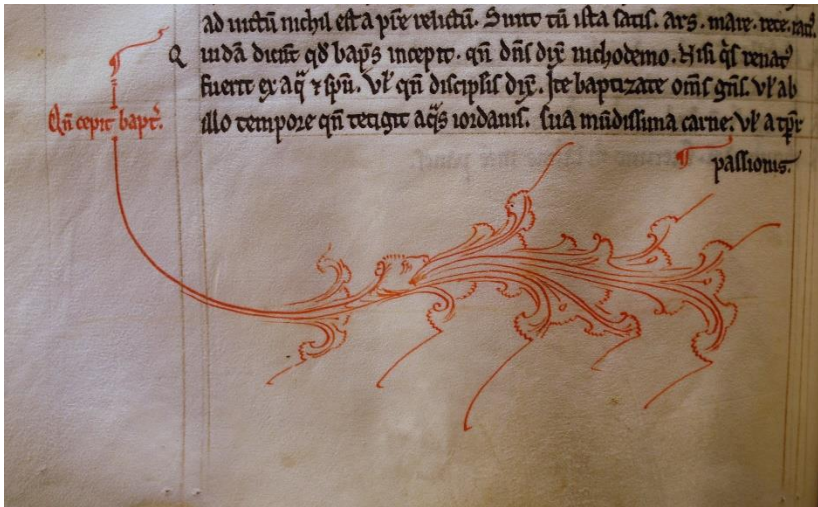 ad uictū nichil est a pr̄e relictū. Sunt tn̄ ista satis. ars. mare. rete.
Q uidā dicūt qđ bap̄s incepit. qn̄ dn̄s dix̄ nichodemo. Nisi q̄s renat᾽
fuerit ex aq̄ ⁊ sp̄u. Vł qn̄ discip̄lis dix̄. Ite baptizate om̄s gn̄s. vł ab
Qn̄ cepit bapt᾽.
illo tempore qn̄ tetigit aq̄s iordanis. sua mūdissima carne. Vł a tp̄r
passionis.